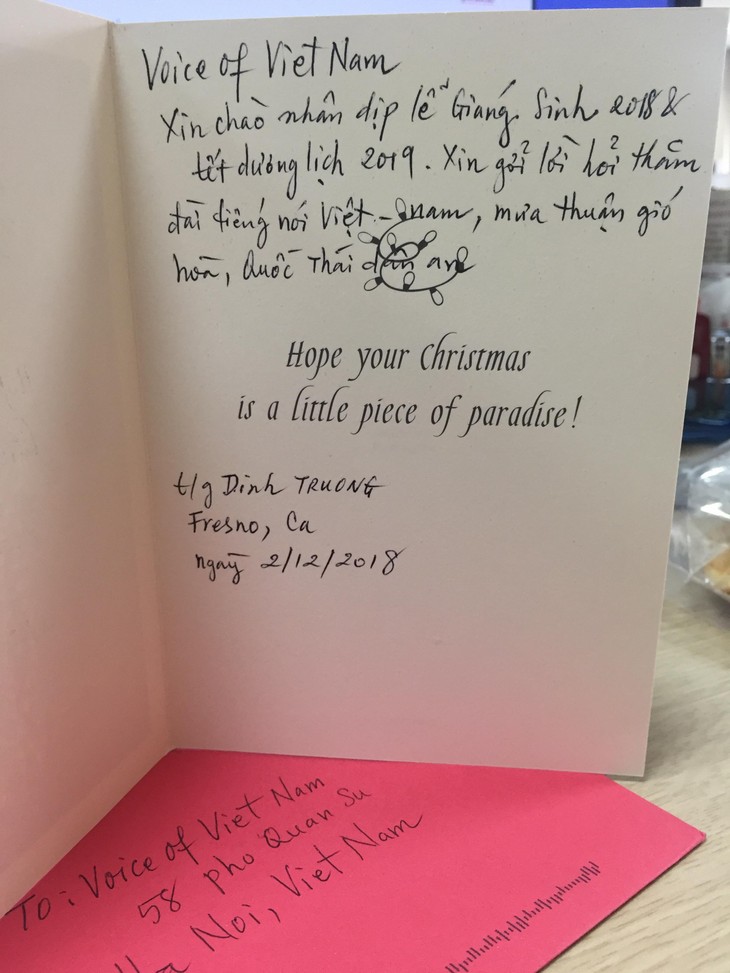 Voice of Việt Nam
Xin chào nhân dịp lễ Giáng Sinh 2018 &
tết dương lịch 2019. Xin gởi lời hỏi thăm
đài tiếng nói Việt-nam, mưa thuận gió
hoà, Quốc Thái dân an
Hope your Christmas
is a little piece of paradise!
t/g Dinh TRUONG
Fresno, Ca
ngày 2/12/2018
To: Voice of Viet Nam
58 Pho Quan Su
Ha Noi, Viet Nam